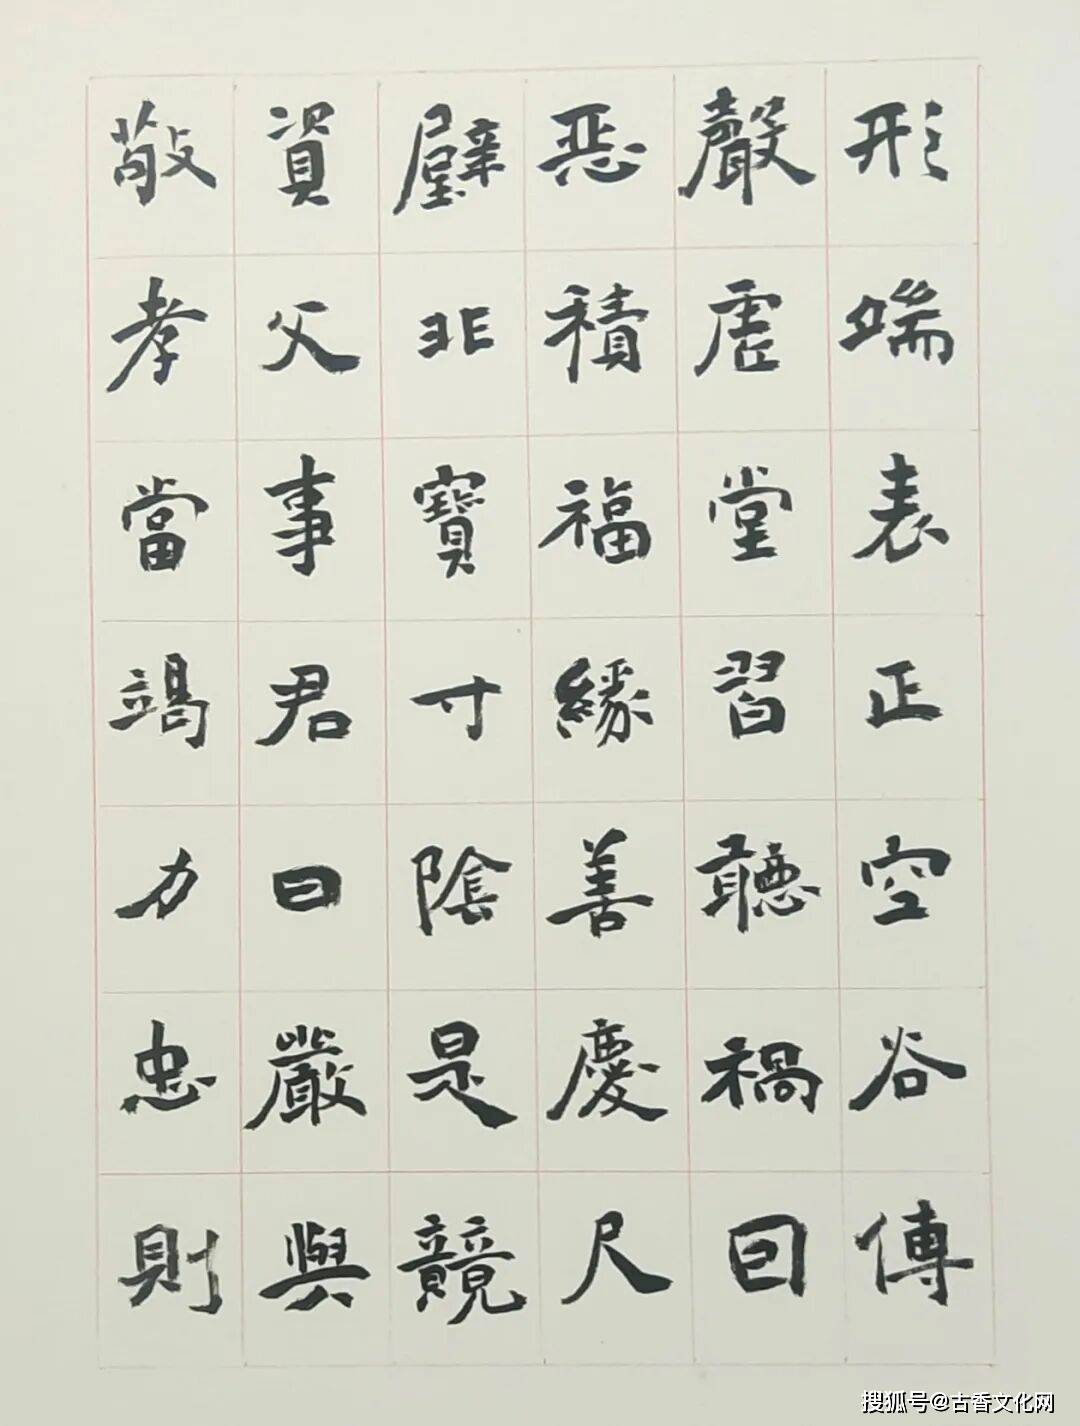 形端表正空谷傳
聲虛堂習聽禍因
惡積福緣善慶尺
璧非寶寸陰是競
資父事君曰嚴與
敬孝當竭力忠則
搜狐号@古香文化网